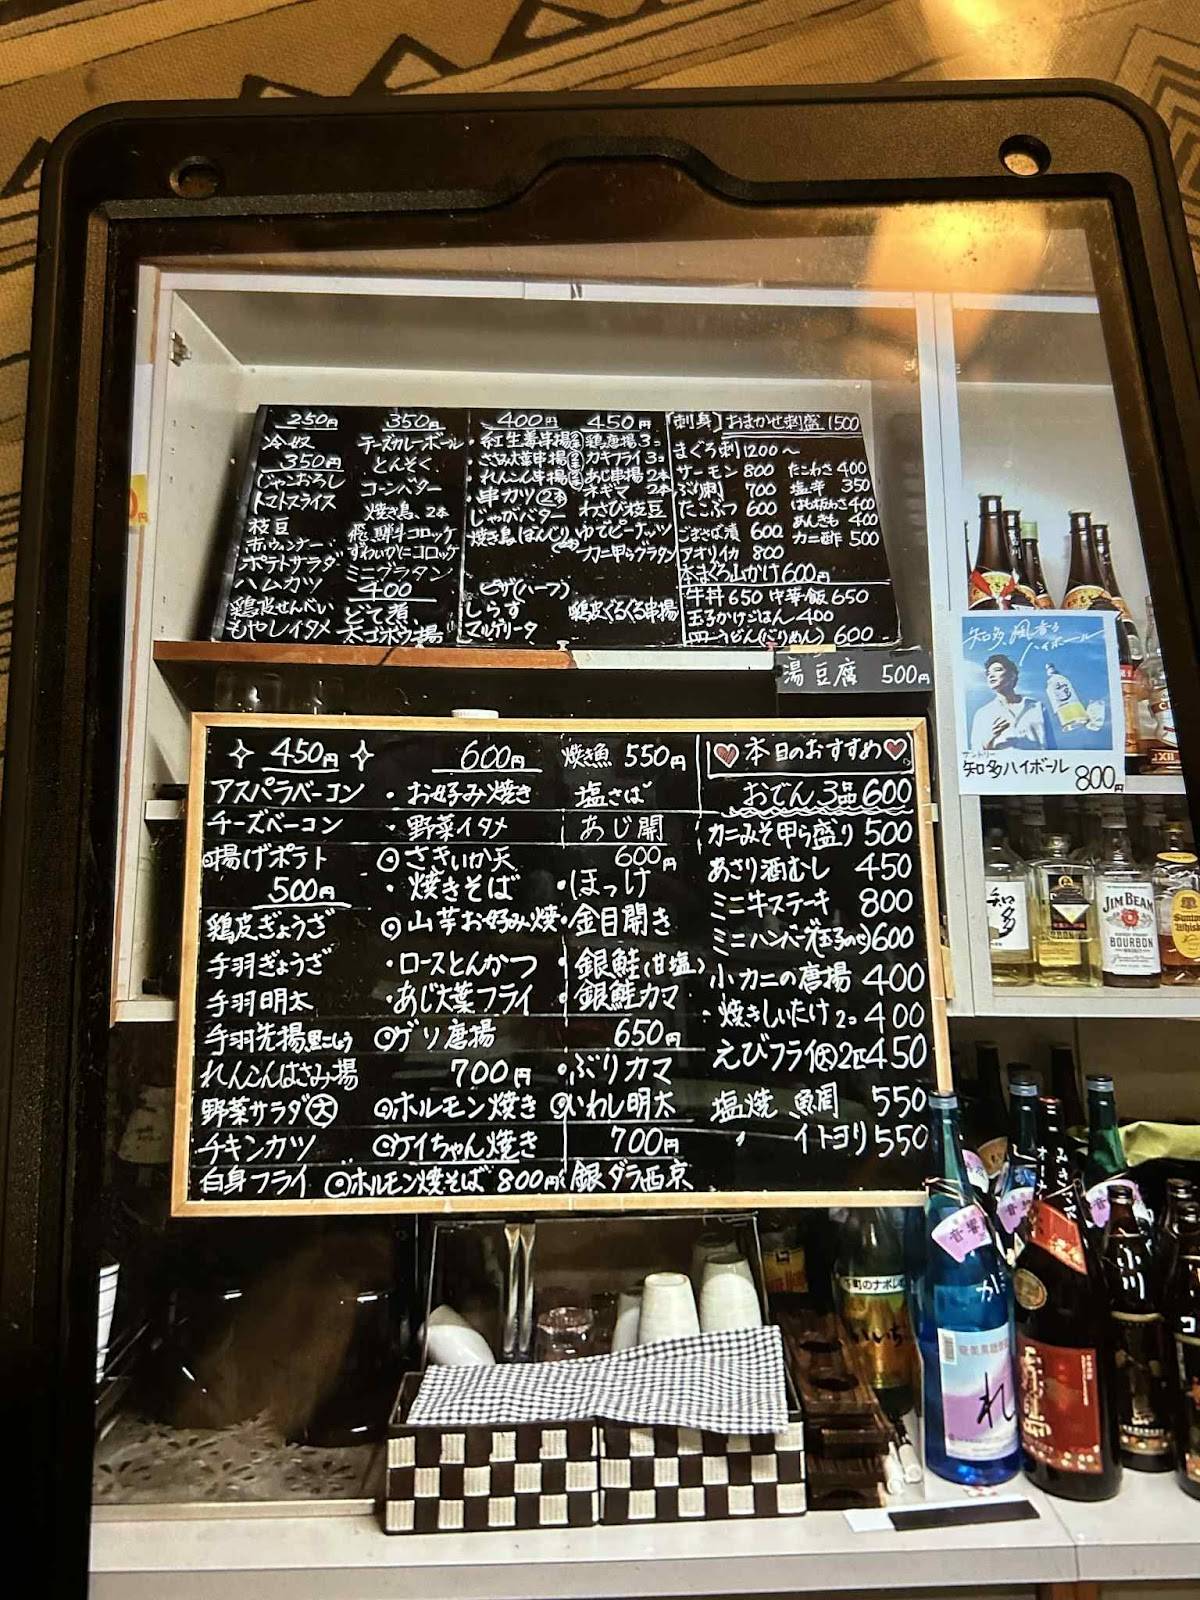 250円
冷奴
350円
じゃこおろし
トマトスライス
枝豆
赤ウィンナー
ポテトサラダ
ハムカツ
鶏皮せんべい
もやしイタメ
350円
チーズカレーボール
とんそく
コーンバター
焼き鳥 2本
飛騨牛コロッケ
ずわいがにコロッケ
ミニグラタン
400
どて煮
太ゴボウ揚
400円
・紅生姜串揚 2本
・ささみ大葉串揚 2本
・れんこん串揚 2本
・串カツ 2本
じゃがバター
焼き鳥
ピザ(ハーフ)
しらす
マルゲリータ
450円
鶏唐揚 3コ
カキフライ 3コ
あじ串揚 2本
ネギマ 2本
わさび枝豆
ゆでピーナッツ
カニ甲らグラタン
鶏皮ぐるぐる串揚
刺身 おまかせ刺盛 1500
まぐろ刺 1200〜
サーモン 800
ぶり刺 700
たこぶつ 600
ごまさば漬 600
アオリイカ 800
本まぐろ山かけ 600円
たこわさ 400
塩辛 350
はも板わさ 400
あんきも 400
カニ酢 500
牛丼 650 中華飯 650
玉子かけごはん 400
うどん 600
湯豆腐 500円
450円
アスパラベーコン
チーズベーコン
◎揚げポテト
500円
鶏皮ぎょうざ
手羽ぎょうざ
手羽明太
手羽先揚 黒こしょう
れんこんはさみ揚
野菜サラダ 大
チキンカツ
白身フライ
600円
・お好み焼き
・野菜イタメ
◎さきいか天
・焼きそば
◎山芋お好み焼
・ロースとんかつ
・あじ大葉フライ
◎ゲソ唐揚
700円
◎ホルモン焼き
◎ケイちゃん焼き
◎ホルモン焼そば 800円
焼き魚 550円
塩さば
あじ開
600円
・ほっけ
・金目開き
・銀鮭(甘塩)
・銀鮭カマ
650円
・ぶりカマ
◎いわし明太
700円
銀ダラ西京
♡本日のおすすめ♡
おでん 3品 600
カニみそ甲ら盛り 500
あさり酒むし 450
ミニ牛ステーキ 800
ミニハンバーグ(玉子のせ) 600
小カニの唐揚 400
・焼きしいたけ 2コ 400
えびフライ 大 2匹 450
塩焼 魚周 550
〃 イトヨリ 550
知多 風香る
ハイボール
サントリー
知多ハイボール 800円
知多
JIM BEAM
BOURBON
Whisky
音響
れ
小川